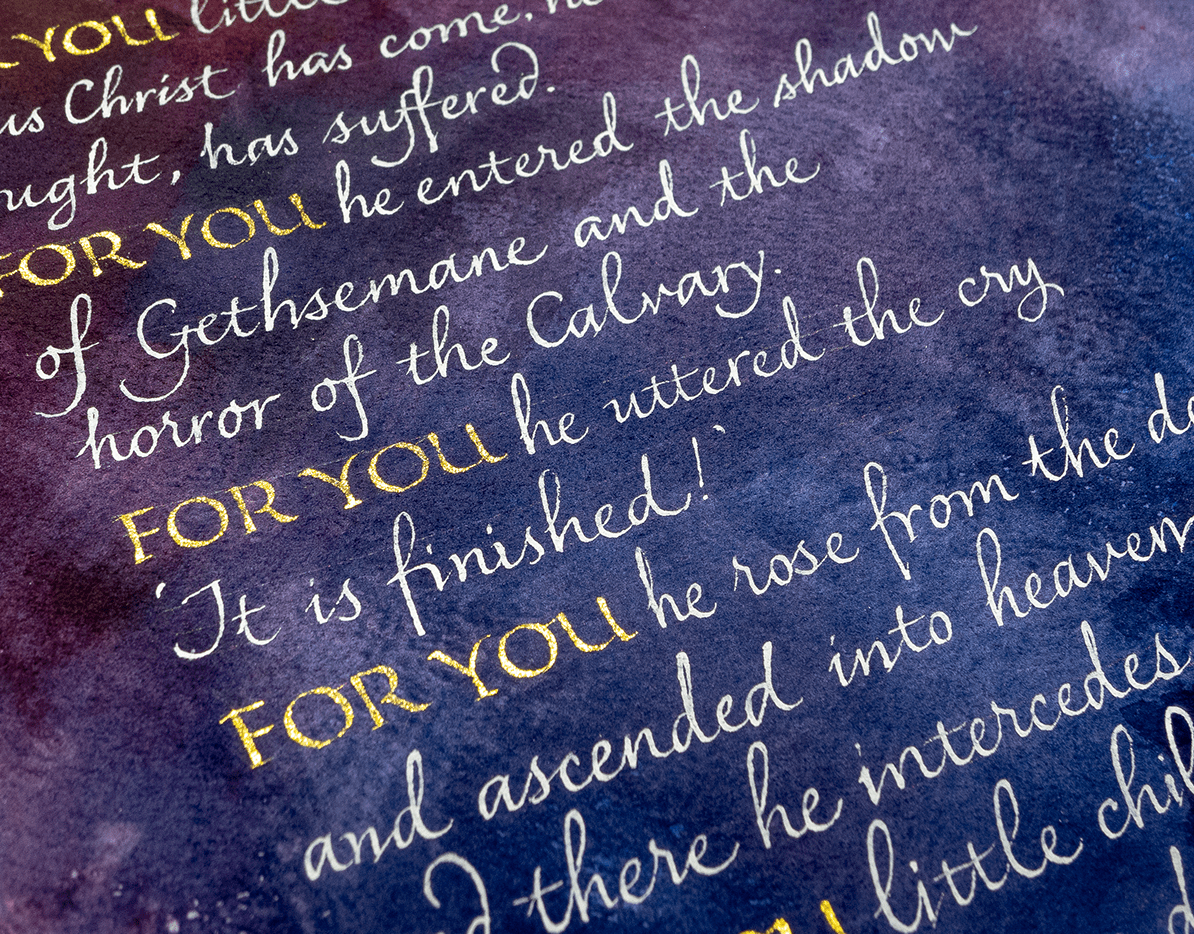 YOU little
us Christ has come, he
ught, has suffered.
FOR YOU he entered the shadow
of Gethsemane and the
horror of the Calvary.
FOR YOU he uttered the cry
'It is finished!'
FOR YOU he rose from the de
and ascended into heaven
there he intercedes
YOU little chil